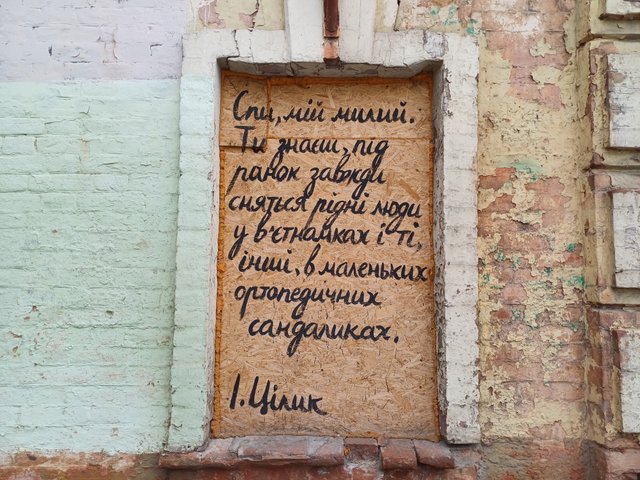 Спи, мій милий.
Ти знаєш, під
ранок завжди
сняться рідні люди
у в'єтнамках і ті,
інші, в маленьких
ортопедичних
сандаликах.
І. Цілик